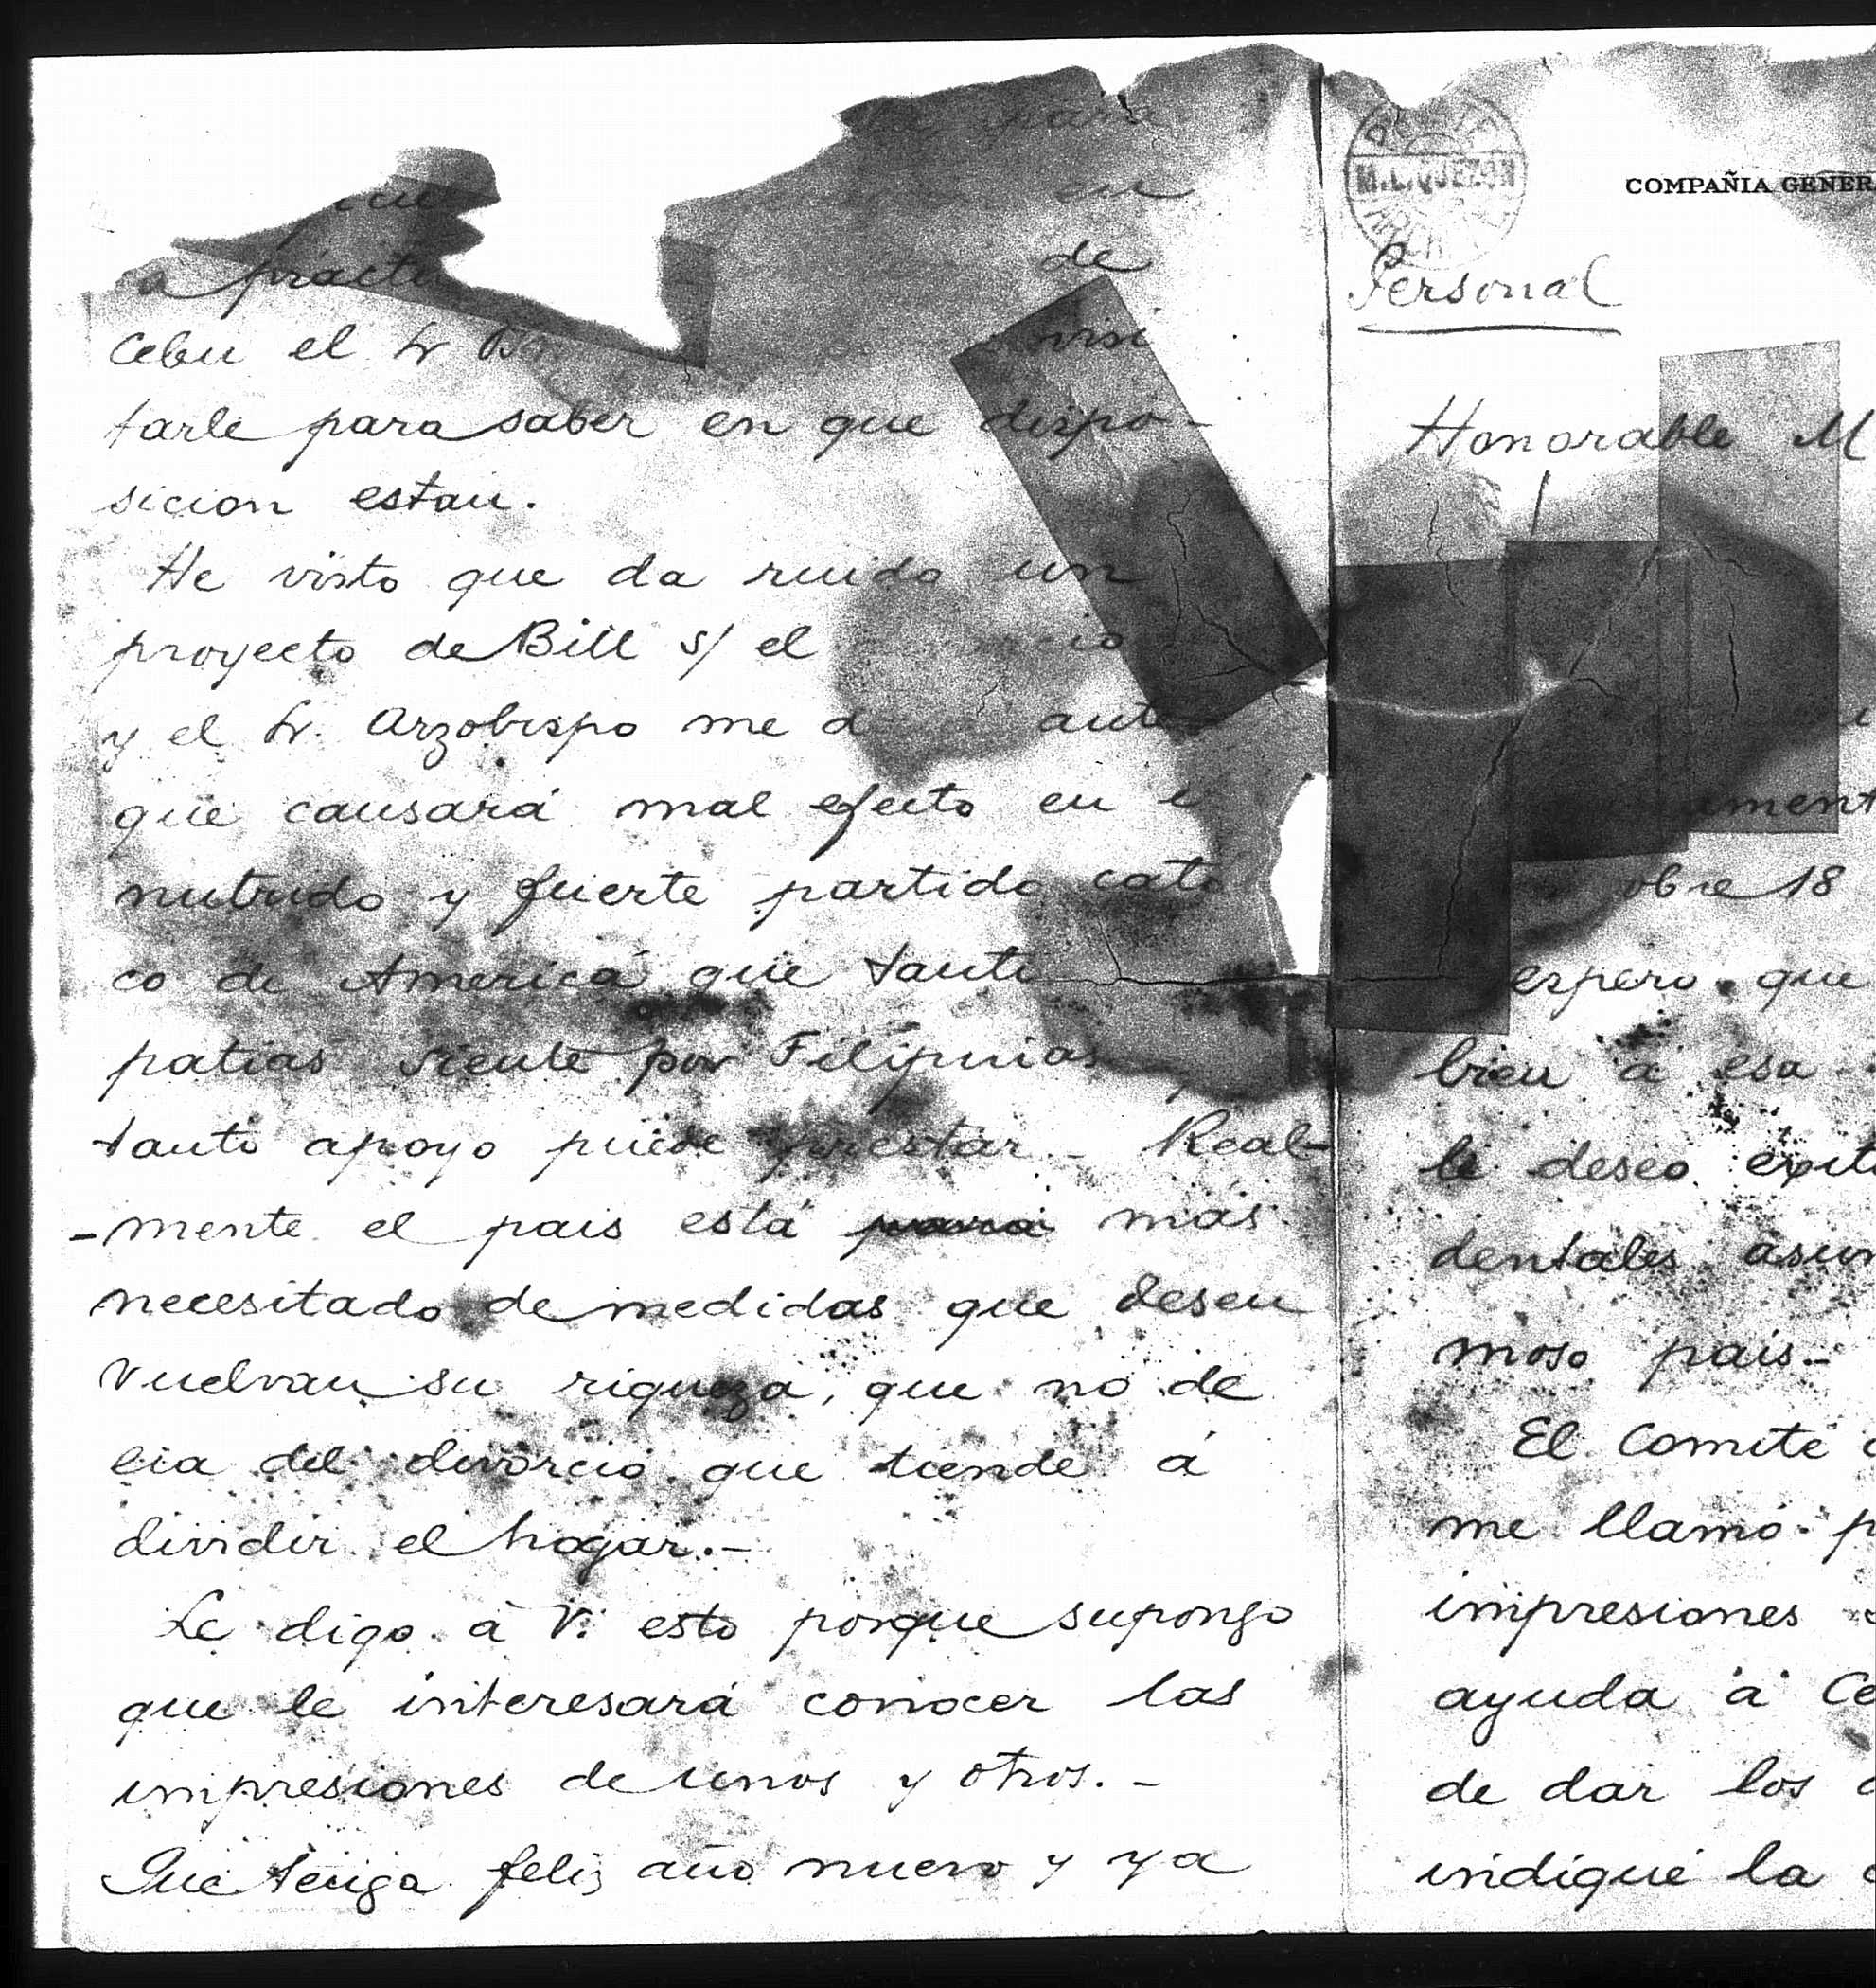 para
en
a practi
de
Cebu el Sr
visi
tarle para saber en que dispo-
sicion estan.
He visto que da ruido un
proyecto de Bill s/ el io
y el Sr. Arzobispo me d
que causará mal efecto en
nutrido y fuerte partido cato
co de America que tanti
patias siente por Filipinas
tanto apoyo puede prestar - Real-
-mente el pais está más
necesitado de medidas que desen
vuelvan su riqueza, que no de
eia del divorcio que tiende á
dividir el hogar.-
Le digo á V. esto porque supongo
que le interesará conocer las
impresiones de unos y otros. -
Que tenga feliz año nuevo y ya
M.L. QUEZON
COMPAÑIA GENER
Personal
Honorable M
ament
obre 18
espero que
bien á esa
le deseo exit
dentales asun
moso pais.-
El Comité
me llamó p
impresiones
ayuda á Ce
de dar los
indiqué la